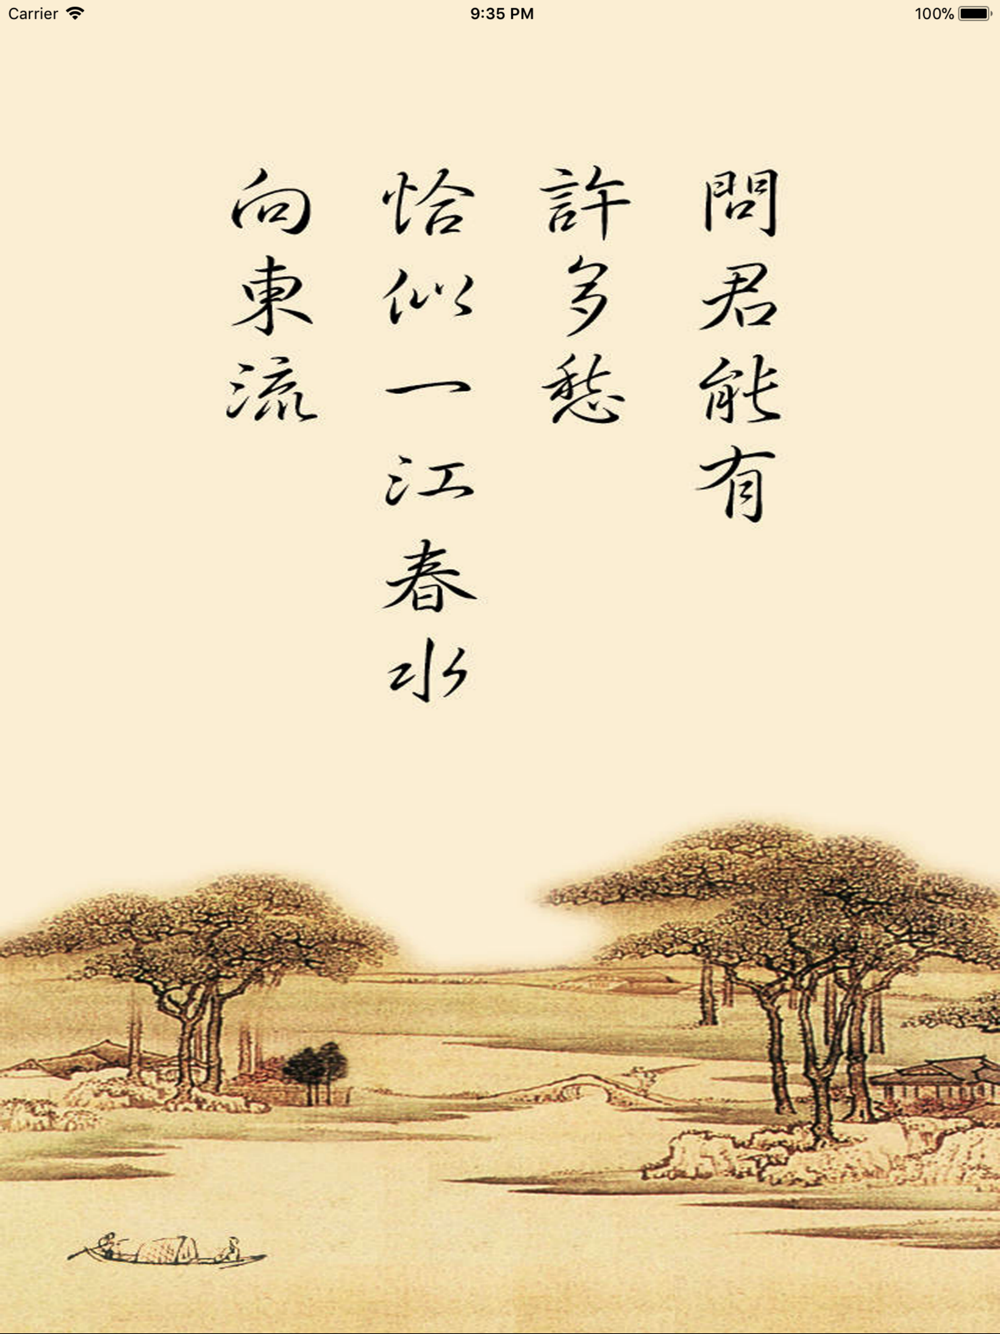 Carrier 9:35 PM 100%
問君能有
許多愁
恰似一江春水
向東流